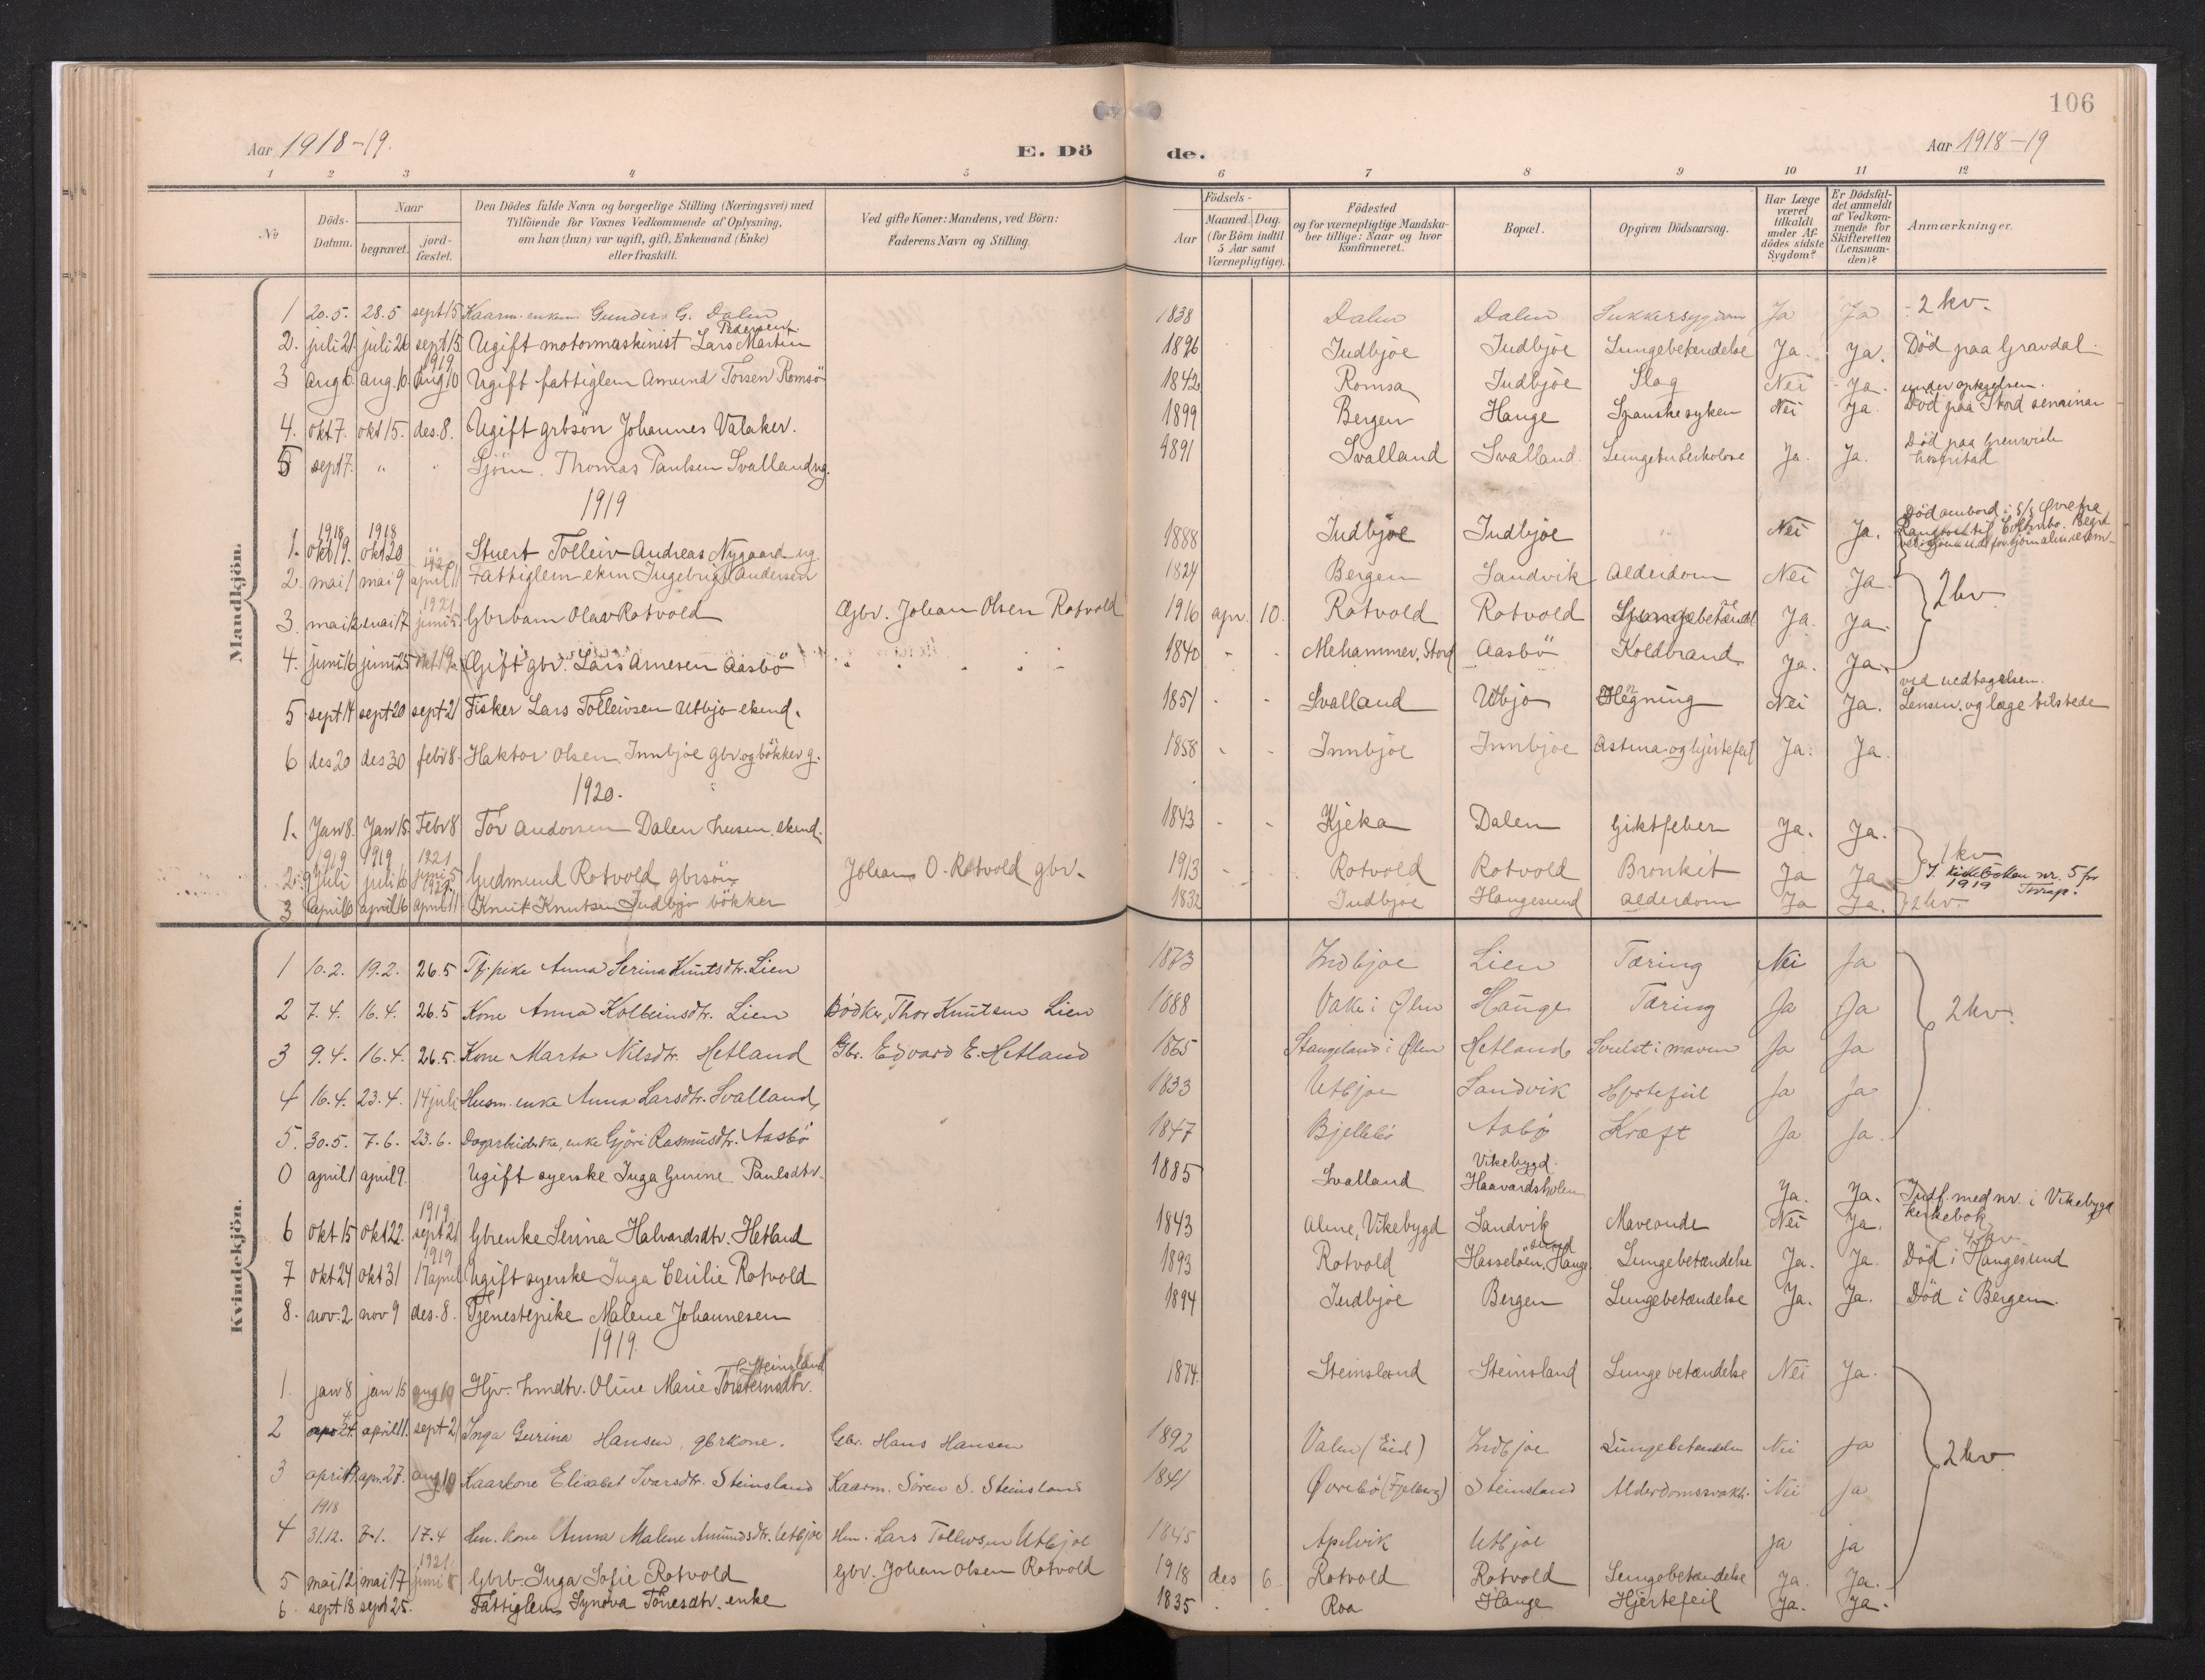 106
Aar 1918-19.
E. Dö
de.
Aar 1918-19
1 2 3 4 5 6 7 8 9 10 11 12
No
Döds-Datum.
Naar
begravet.
jordfæstet.
Den Dödes fulde Navn og borgerlige Stilling (Næringsvei) med Tilföiende for Voxnes Vedkommende af Oplysning, om han (hun) var ugift, gift, Enkemand (Enke) eller fraskilt.
Ved gifte Koner: Mandens, ved Börn: Faderens Navn og Stilling.
Födsels-
Aar
Maaned. Dag.
(for Börn indtil 5 Aar samt Værnepligtige).
Födested og for værnepligtige Mandskaber tillige: Naar og hvor konfirmeret.
Bopæl.
Opgiven Dödsaarsag.
Har Læge været tilkaldt under Afdödes sidste Sygdom?
Er Dödsfaldet anmeldt af Vedkommende for Skifteretten (Lensmanden)?
Anmærkninger.
Mandkjön.
1 20.5. 28.5 sept 15 Kaarm. enkem. Gunder G. Dalen 1838 Dalen Dalen Sukkersygdom Ja Ja 2 kv.
2. juli 21 juli 26 sept 15. Ugift motormaskinist Lars Martin Pedersen 1896 Indbjoe Indbjoe Lungebetændelse Ja. Ja. Död paa Gravdal.
3 aug 6. aug. 10. 1919 aug 10 Ugift fattiglem Amund Torsen Romsö 1842 Romsa Indbjoe Slag Nei Ja.
4. okt 7. okt 15. des. 8. Ugift grbsön Johannes Valaker. 1899 Bergen Hauge Spanskesyken Nei Ja. Död paa Stord seminar
5 sept 7. " " Sjöm. Thomas Paulsen Svalland ug. 1891 Svalland Svalland Lungetuberkolose Ja. Ja. Död paa Grenwich hospital
1919
1. 1918 okt 19. 1918 okt 20 Stuert Tolleiv Andreas Nygaard ug. 1888 Indbjoe Indbjoe " Nei Ja. Död ombord i s/s
2. mai 1 mai 9 april 11 Fattiglem ekm Ingebrigt Andersen 1824 Bergen Sandvik Alderdom Nei Ja.
3. mai 12 mai 17 1921 juni 5. Gbrbarn Olav Rotvold Gbr. Johan Olsen Rotvold 1916 apr. 10. Rotvold Rotvold Lungebetændl Ja. Ja. 2 kv
4. juni 16 juni 25 okt 19. Gift gbr. Lars Arnesen Aasbö 1840 - - Mehammer, Stord Aasbö Koldbrand Ja. Ja.
5 sept 14 sept 20 sept 21 Fisker Lars Tolleivsen Utbjo ekmd. 1851 - - Svalland Utbjo Hengning Nei Ja. ved nedtagelsen. Lensm. og læge tilstede
6 des 20 des 30 febr 8. Haktor Olsen Innbjoe gbr og bökker g. 1858 - - Innbjoe Innbjoe Astma og hjertefeil Ja. Ja.
1920.
1. Jan 8. Jan 15. Febr 8 Tor Andersen Dalen husm. ekmd. 1843 - - Kjeka Dalen Giktfeber Ja. Ja.
2. 1919 9 juli 1919 juli 16 1921 juni 5 Gudmund Rotvold gbrsön Johan O. Rotvold gbr. 1913 - - Rotvold Rotvold Bronkit Ja Ja 1 kv I kirkeboken nr. 5 for 1919
3 april 10 april 16 april 11 Knut Knutsen Indbjo bökker 1832 Indbjoe Haugesund Alderdom Ja Ja. 2 kv.
Kvindekjön.
1 10.2. 19.2. 26.5 Tj. pike Anna Serina Knutsdtr. Lien 1873 Indbjoe Lien Tæring Nei Ja
2 7.4. 16.4. 26.5 Kone Anna Kolbeinsdtr. Lien Bödker Thor Knutsen Lien 1888 Vake i Ølen Hauge Tæring Ja Ja 2 kv.
3 9.4. 16.4. 26.5. Kone Marta Nilsdtr. Hetland Gbr. Edvard E. Hetland 1865 Stangeland i Ølen Hetland Svulst i maven Ja Ja
4 16.4. 23.4. 14 juli Husm. enke Anna Larsdtr. Svalland 1833 Utbjoe Sandvik Hjertefeil Ja Ja
5. 30.5. 7.6. 23.6. Dagarbeiderske, enke Gjöri Rasmusdtr. Aasbö 1847 Bjellebö Aasbö Kræft Ja Ja.
0 april 1 april 9. Ugift syerske Inga Gurine Paulsdtr. 1885 Svalland Vikebygd. Haavardsholm Ja. Ja. Indf. med nr. i Vikebygd kirkebok
6 okt 15 okt 22. 1919 sept 21 Gbrenke Serina Halvardsdtr. Hetland 1843 Alme, Vikebygd Sandvik Maveonde Nei Ja.
7 okt 24 okt 31 1919 17 april Ugift syerske Inga Cecilie Rotvold 1893 Rotvold Hasselöen, Haugesund Lungebetændelse Ja. Ja. Död i Haugesund
8. nov. 2 nov 9 des. 8. Tjenestepike Malene Johannesen 1894 Indbjoe Bergen Lungebetændelse Ja. Ja. Död i Bergen.
1919.
1. jan 8 jan 15 aug 10 Hjv. hmdtr. Oline Marie Torsteinsdtr. Steinsland 1874 Steinsland Steinsland Lungebetændelse Nei Ja.
2 april 11. sept 21 Inga Gurina Hansen, gbrkone. Gbr. Hans Hansen 1892 Valen (Eid) Indbjoe Lungebetændelse Nei Ja
3 apr. 27. aug 10 Kaarkone Elisabet Ivarsdtr. Steinsland Kaarm. Sören S. Steinsland 1841 Øvrebö (Fjelberg) Steinsland Alderdomssvakh. Nei Ja 2 kv
4 1918 31.12. 7-1. 17.4 Hm. kone Anna Malene Amundsdtr. Utbjoe Hm. Lars Tolleivsen Utbjoe 1845 Apelvik Utbjoe ja ja
5 mai 12 mai 17 1921 juni 5 Gbrb. Inga Sofie Rotvold Gbr. Johan Olsen Rotvold 1918 des 6 Rotvold Rotvold Lungebetændelse Ja. Ja.
6. sept 18 sept 25. Fattiglem Synöva Tönesdtr. enke 1835 Roa Hauge Hjertefeil Ja. Ja.